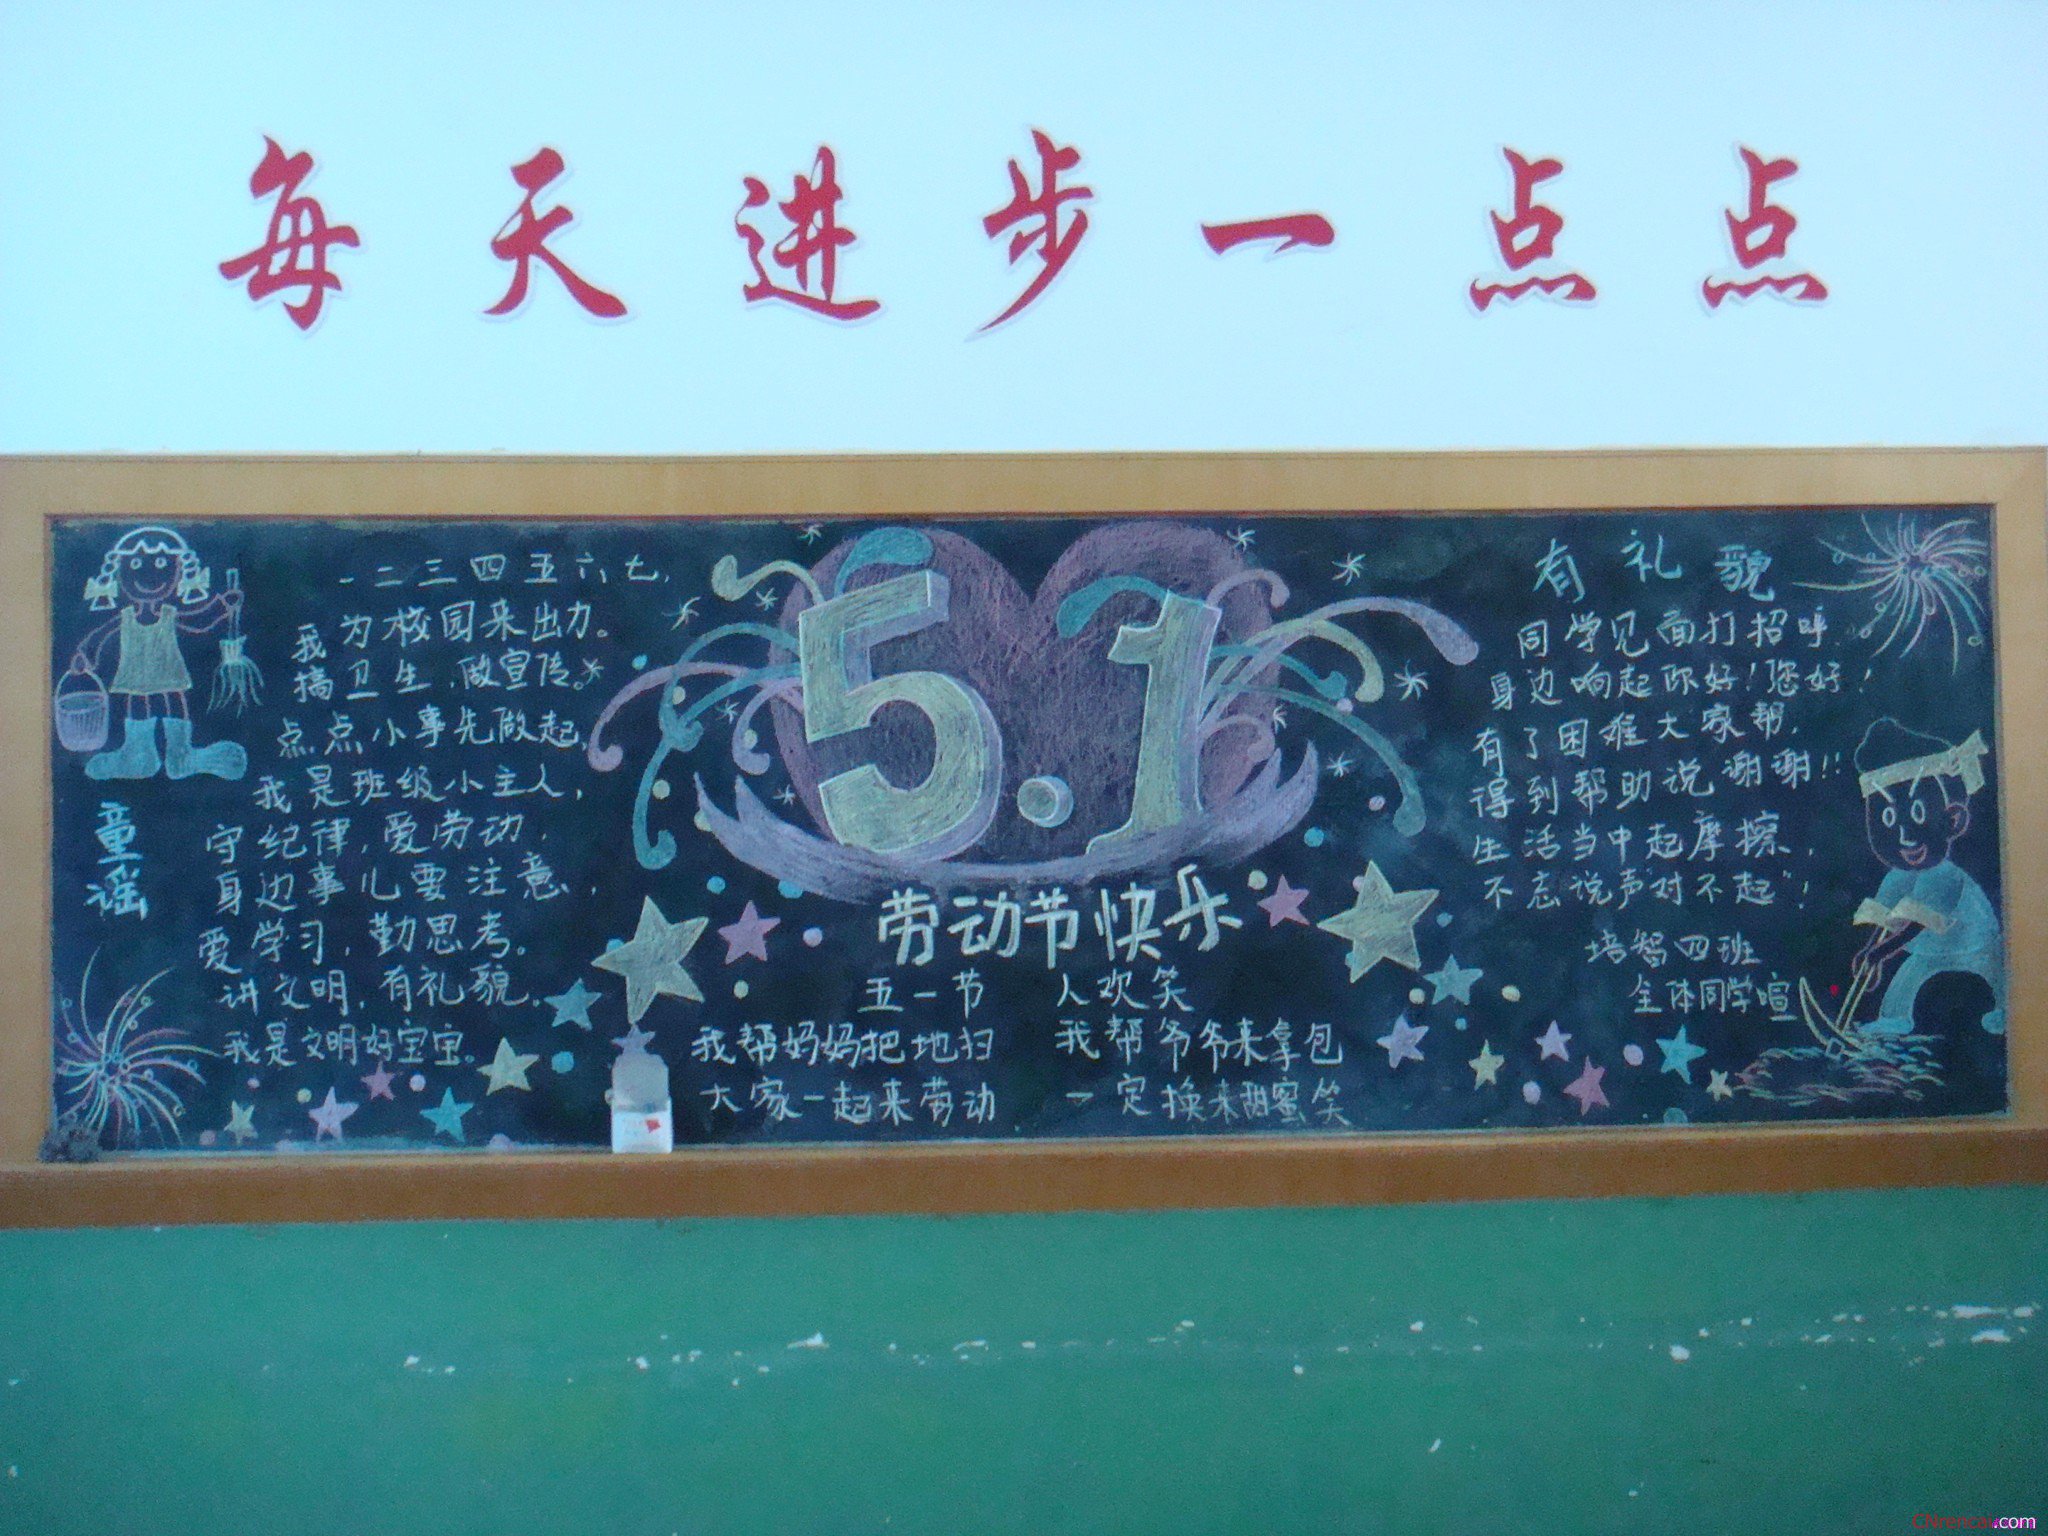 每天进步一点点
童谣
一二三四五六七，
我为校园来出力。
搞卫生，做宣传。
点点小事先做起，
我是班级小主人，
守纪律，爱劳动，
身边事儿要注意，
爱学习，勤思考。
讲文明，有礼貌。
我是文明好宝宝。
5.1
劳动节快乐
五一节 人欢笑
我帮妈妈把地扫 我帮爷爷来拿包
大家一起来劳动 一定换来甜蜜笑
有礼貌
同学见面打招呼，
身边响起你好！您好！
有了困难大家帮，
得到帮助说谢谢！！
生活当中起摩擦，
不忘说声“对不起”！
培智四班
全体同学喧